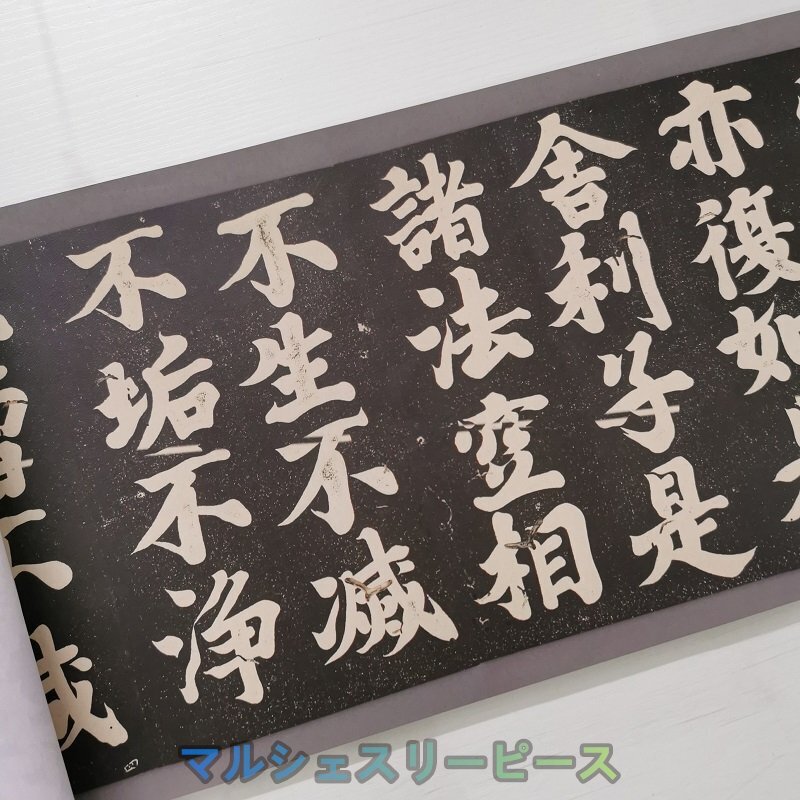 亦復如
舍利子是
諸法空相
不生不滅
不垢不浄
マルシェスリーピース